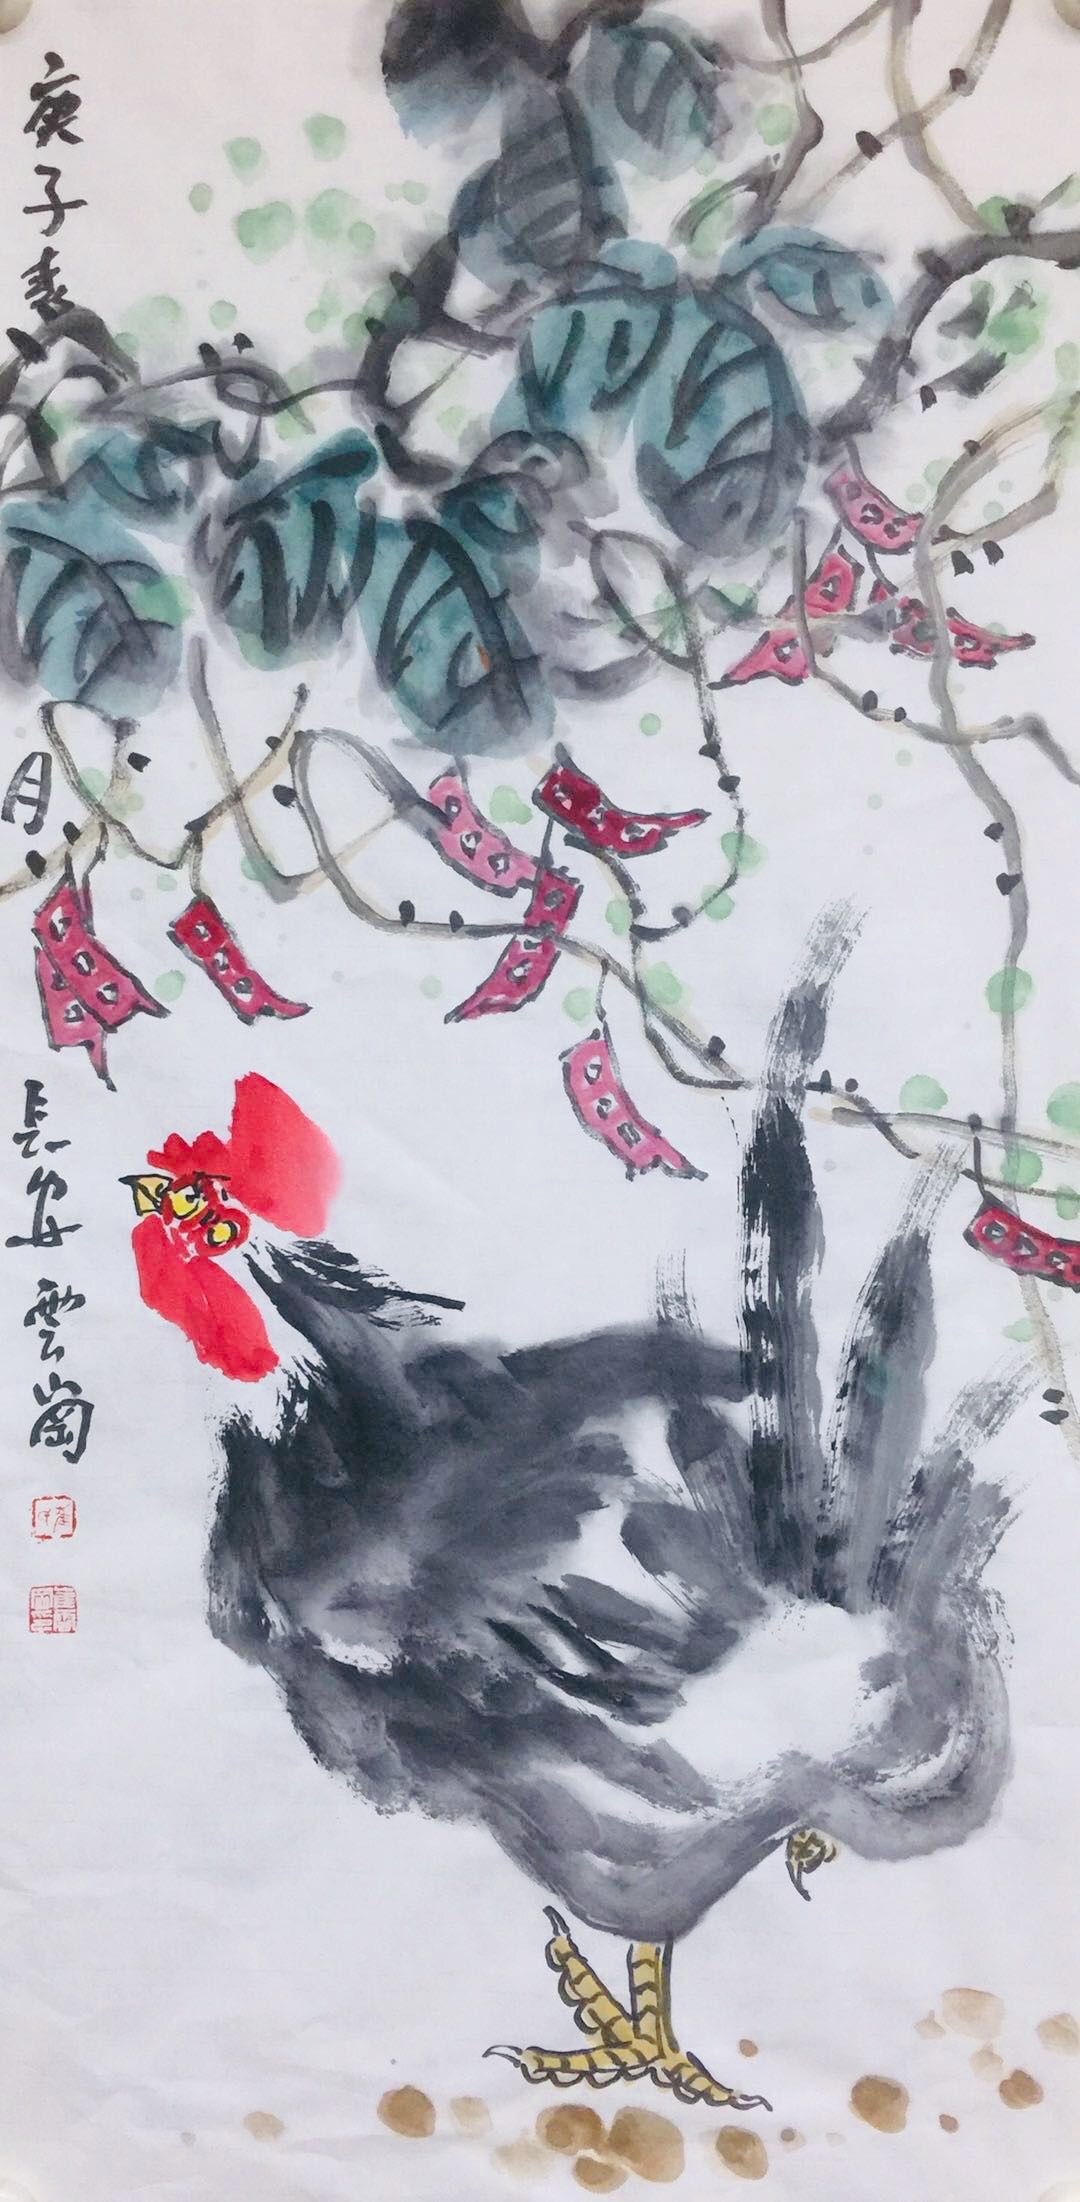 庚子春月長安雲崗